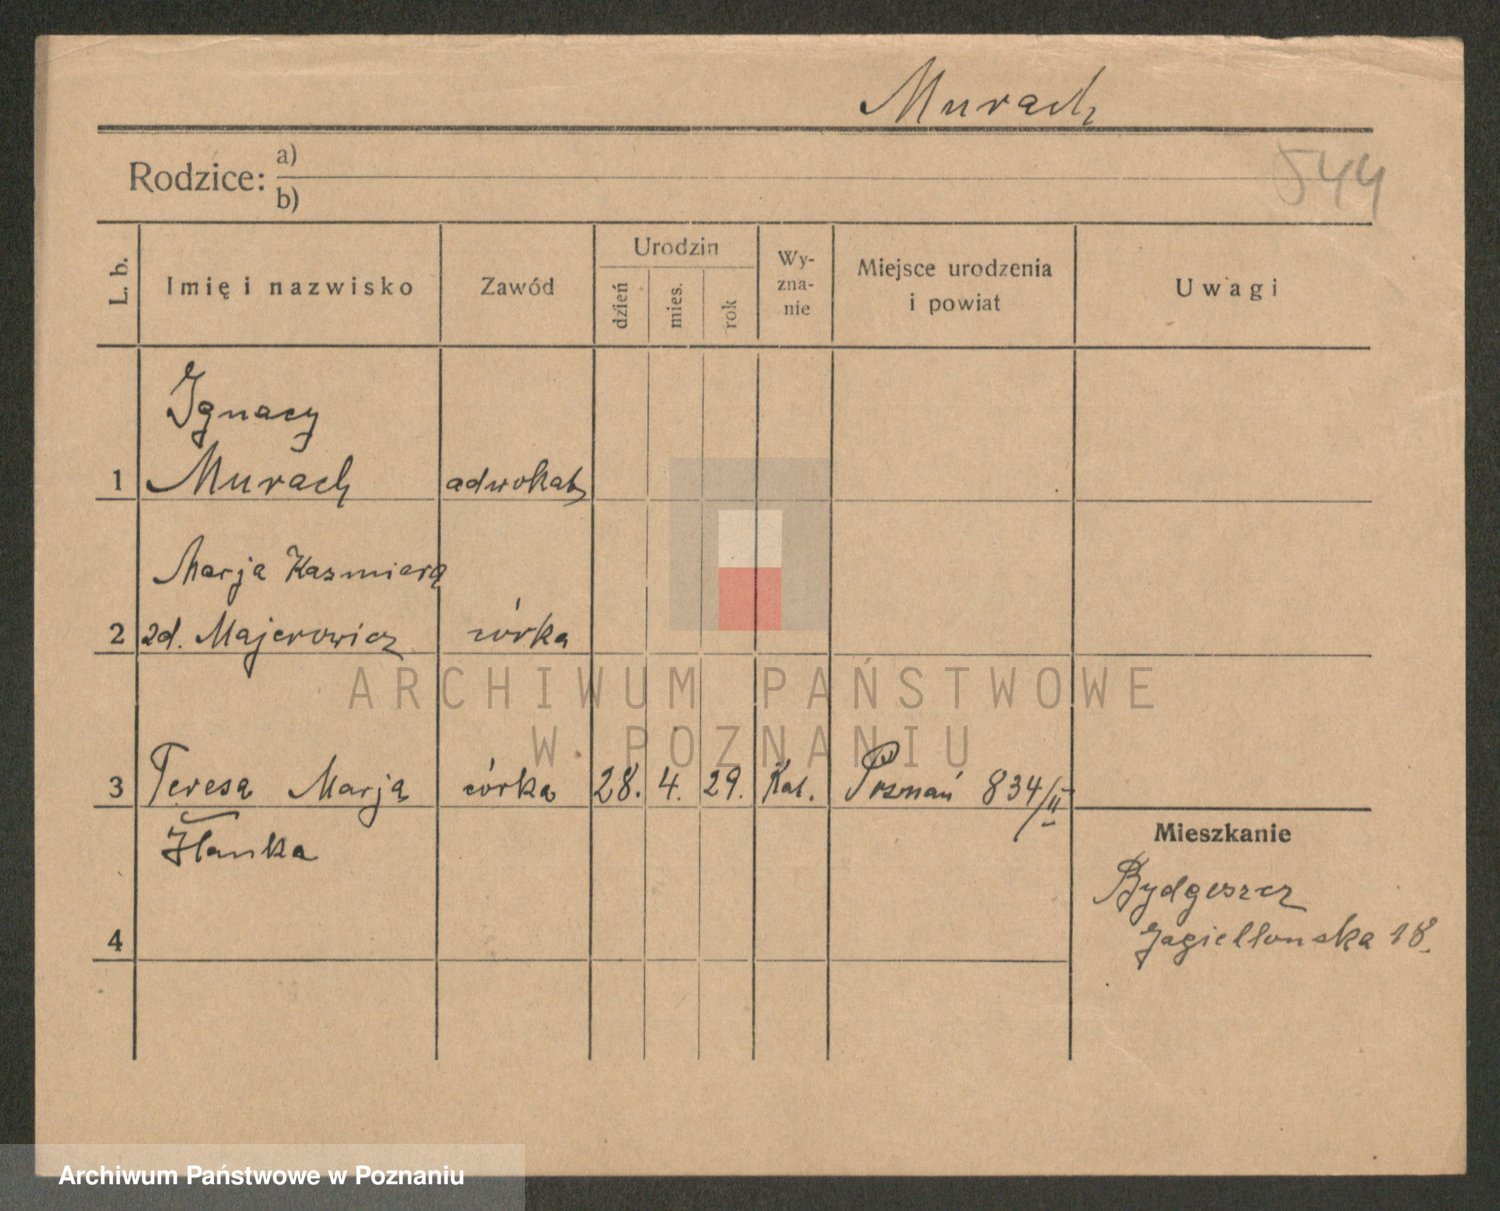 Murach
Rodzice: a)
b)
544
L. b.
Imię i nazwisko
Zawód
Urodzin
dzień
mies.
rok
Wy-
zna-
nie
Miejsce urodzenia
i powiat
Uwagi
Ignacy
1 Murach adwokat
Marja Kazmiera
2 zd. Majerowicz córka
ARCHIWUM PAŃSTWOWE
W POZNANIU
3 Teresa Marja córka 28. 4. 29. Kat. Poznań 834/II
Hanka
Mieszkanie
Bydgoszcz
Jagiellonska 18.
4
Archiwum Państwowe w Poznaniu